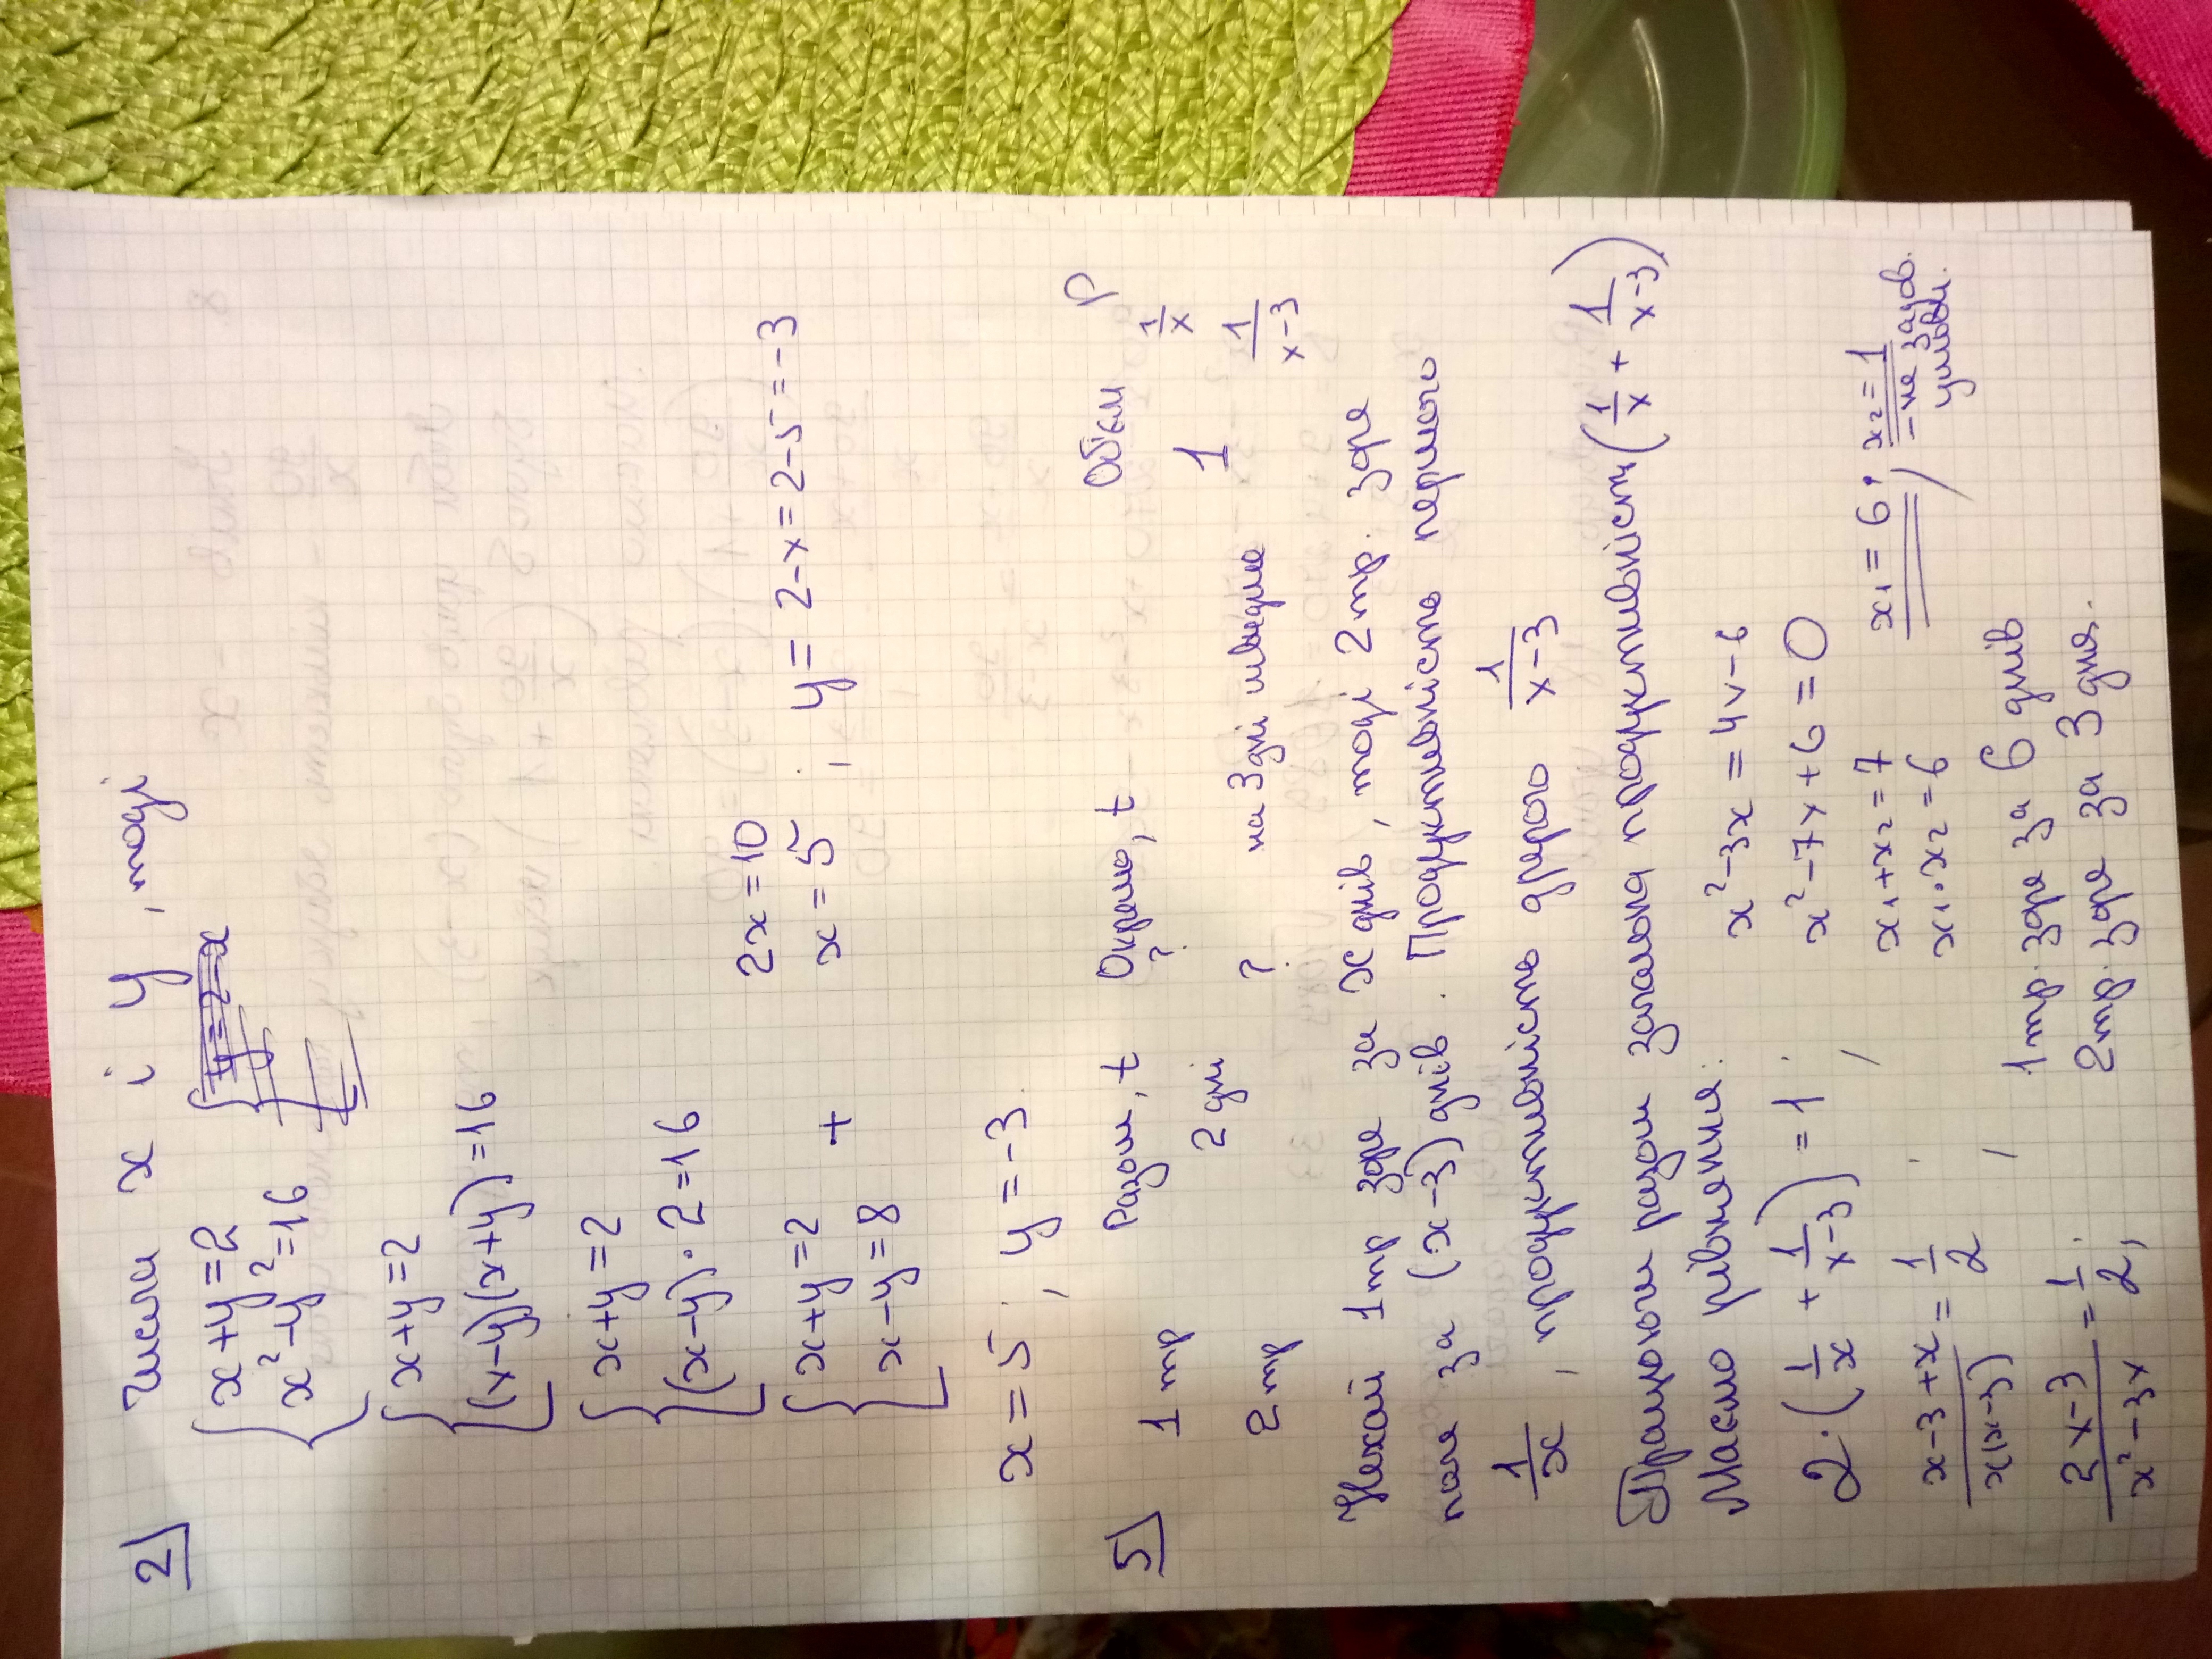 2) Числа x і y, тоді
{ x+y=2
x²-y²=16
{ x+y=2
(x-y)(x+y)=16
{ x+y=2
(x-y)·2=16
{ x+y=2
x-y=8 +
2x=10
x=5 ; y=2-x=2-5=-3
x=5 ; y=-3.
5) Разом, t Окремо, t Обєм P
1 тр ? 1/x
2 дні 1
2 тр ? на 3 дні швидше 1/(x-3)
Нехай 1 тр зоре за x днів, тоді 2 тр. зоре
поле за (x-3) днів. Продуктивність першого
1/x, продуктивність другого 1/(x-3)
Працюючи разом загальна продуктивність (1/x + 1/(x-3))
Маємо рівняння:
2·(1/x + 1/(x-3)) = 1 ;
(x-3+x)/(x(x-3)) = 1/2 ;
(2x-3)/(x²-3x) = 1/2 ;
x²-3x=4x-6
x²-7x+6=0
x₁+x₂=7
x₁·x₂=6
x₁=6; x₂=1
-не задов.
умові.
1 тр зоре за 6 днів
2 тр. зоре за 3 дня.